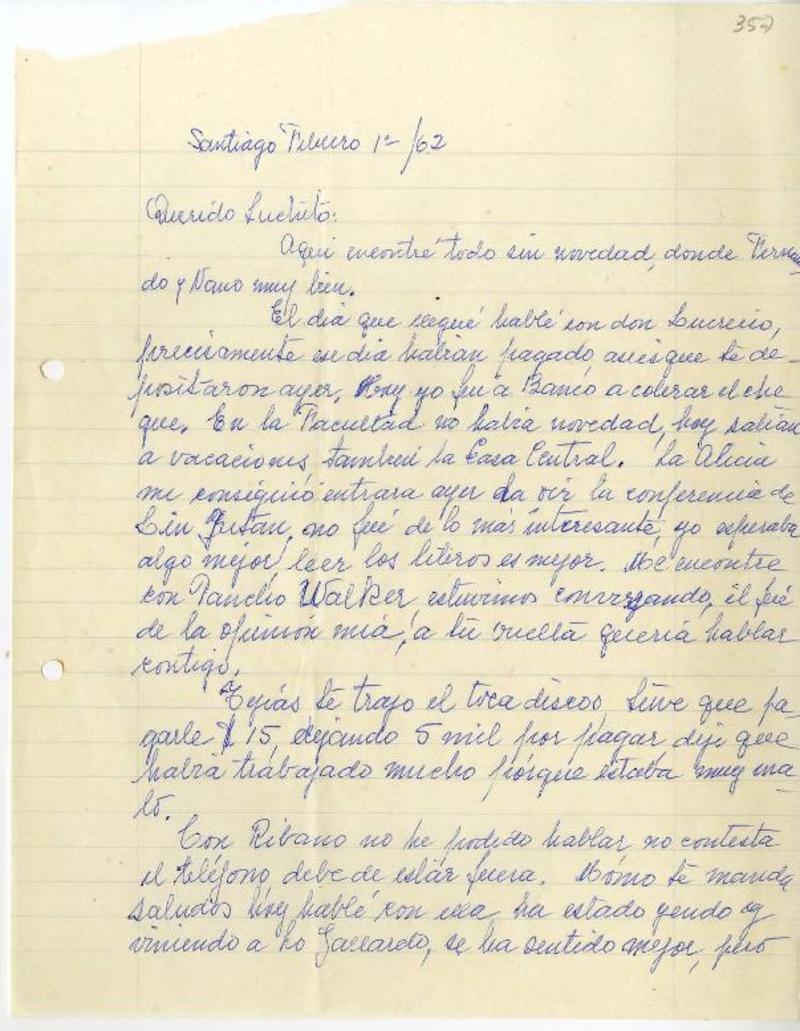 357
Santiago Febrero 1º/62
Querido Luchito:
Aqui encontré todo sin novedad, donde Fernan
do y Nano muy bien.
El dia que llegué hablé con don Lucrecio,
precisamente ese dia habian pagado, asi es que te de-
positaron ayer, Hoy yo fui a Banco a cobrar el che
que. En la Facultad no habia novedad, hoy salian
a vacaciones, tambien la Casa Central. La Alicia
me consiguió entrara ayer a oir la conferencia de
Lin Yutan, no fué de lo más interesante, yo esperaba
algo mejor, leer los libros es mejor. Me encontre
con Pancho Walker, estuvimos conversando, él fué
de la opinión mia, a tu vuelta queria hablar
contigo.
Tejias te trajo el toca discos, tuve que pa-
garle $ 15, dejando 5 mil por pagar, dijo que
habia trabajado mucho porque estaba muy ma-
lo.
Con Ribano no he podido hablar no contesta
el teléfono, debe de estar fuera. Mómo te manda
saludos hoy hablé con ella, ha estado yendo y
viniendo a Lo Gallardo, se ha sentido mejor, pero